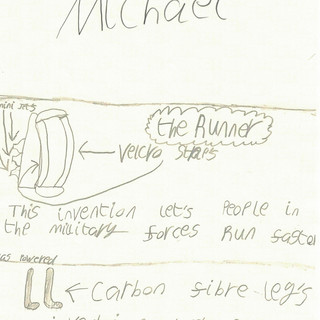 Michael
mini jets
the Runner
velcro straps
This invention let's People in
the military forces Run faster
gas powered
carbon fibre leg's